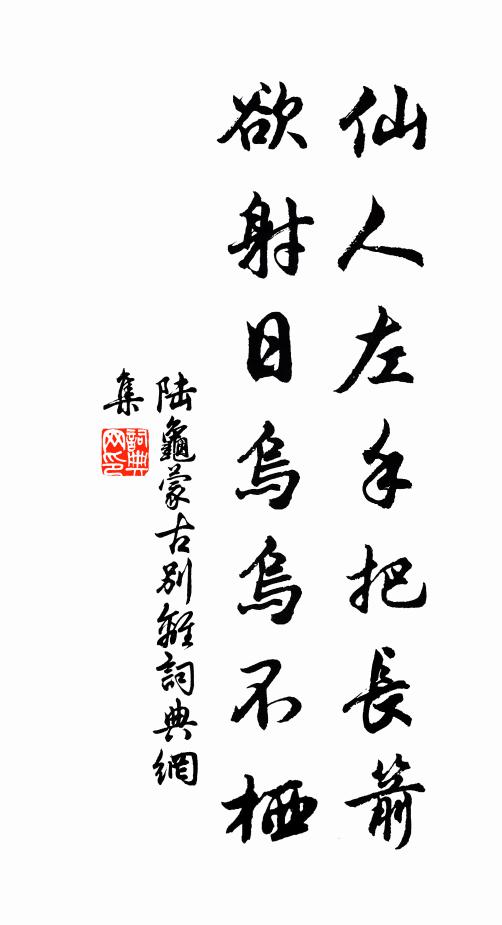 仙人左手把長箭
欲射日烏烏不栖
陆龜蒙古别離詞典網
集
詞典网印